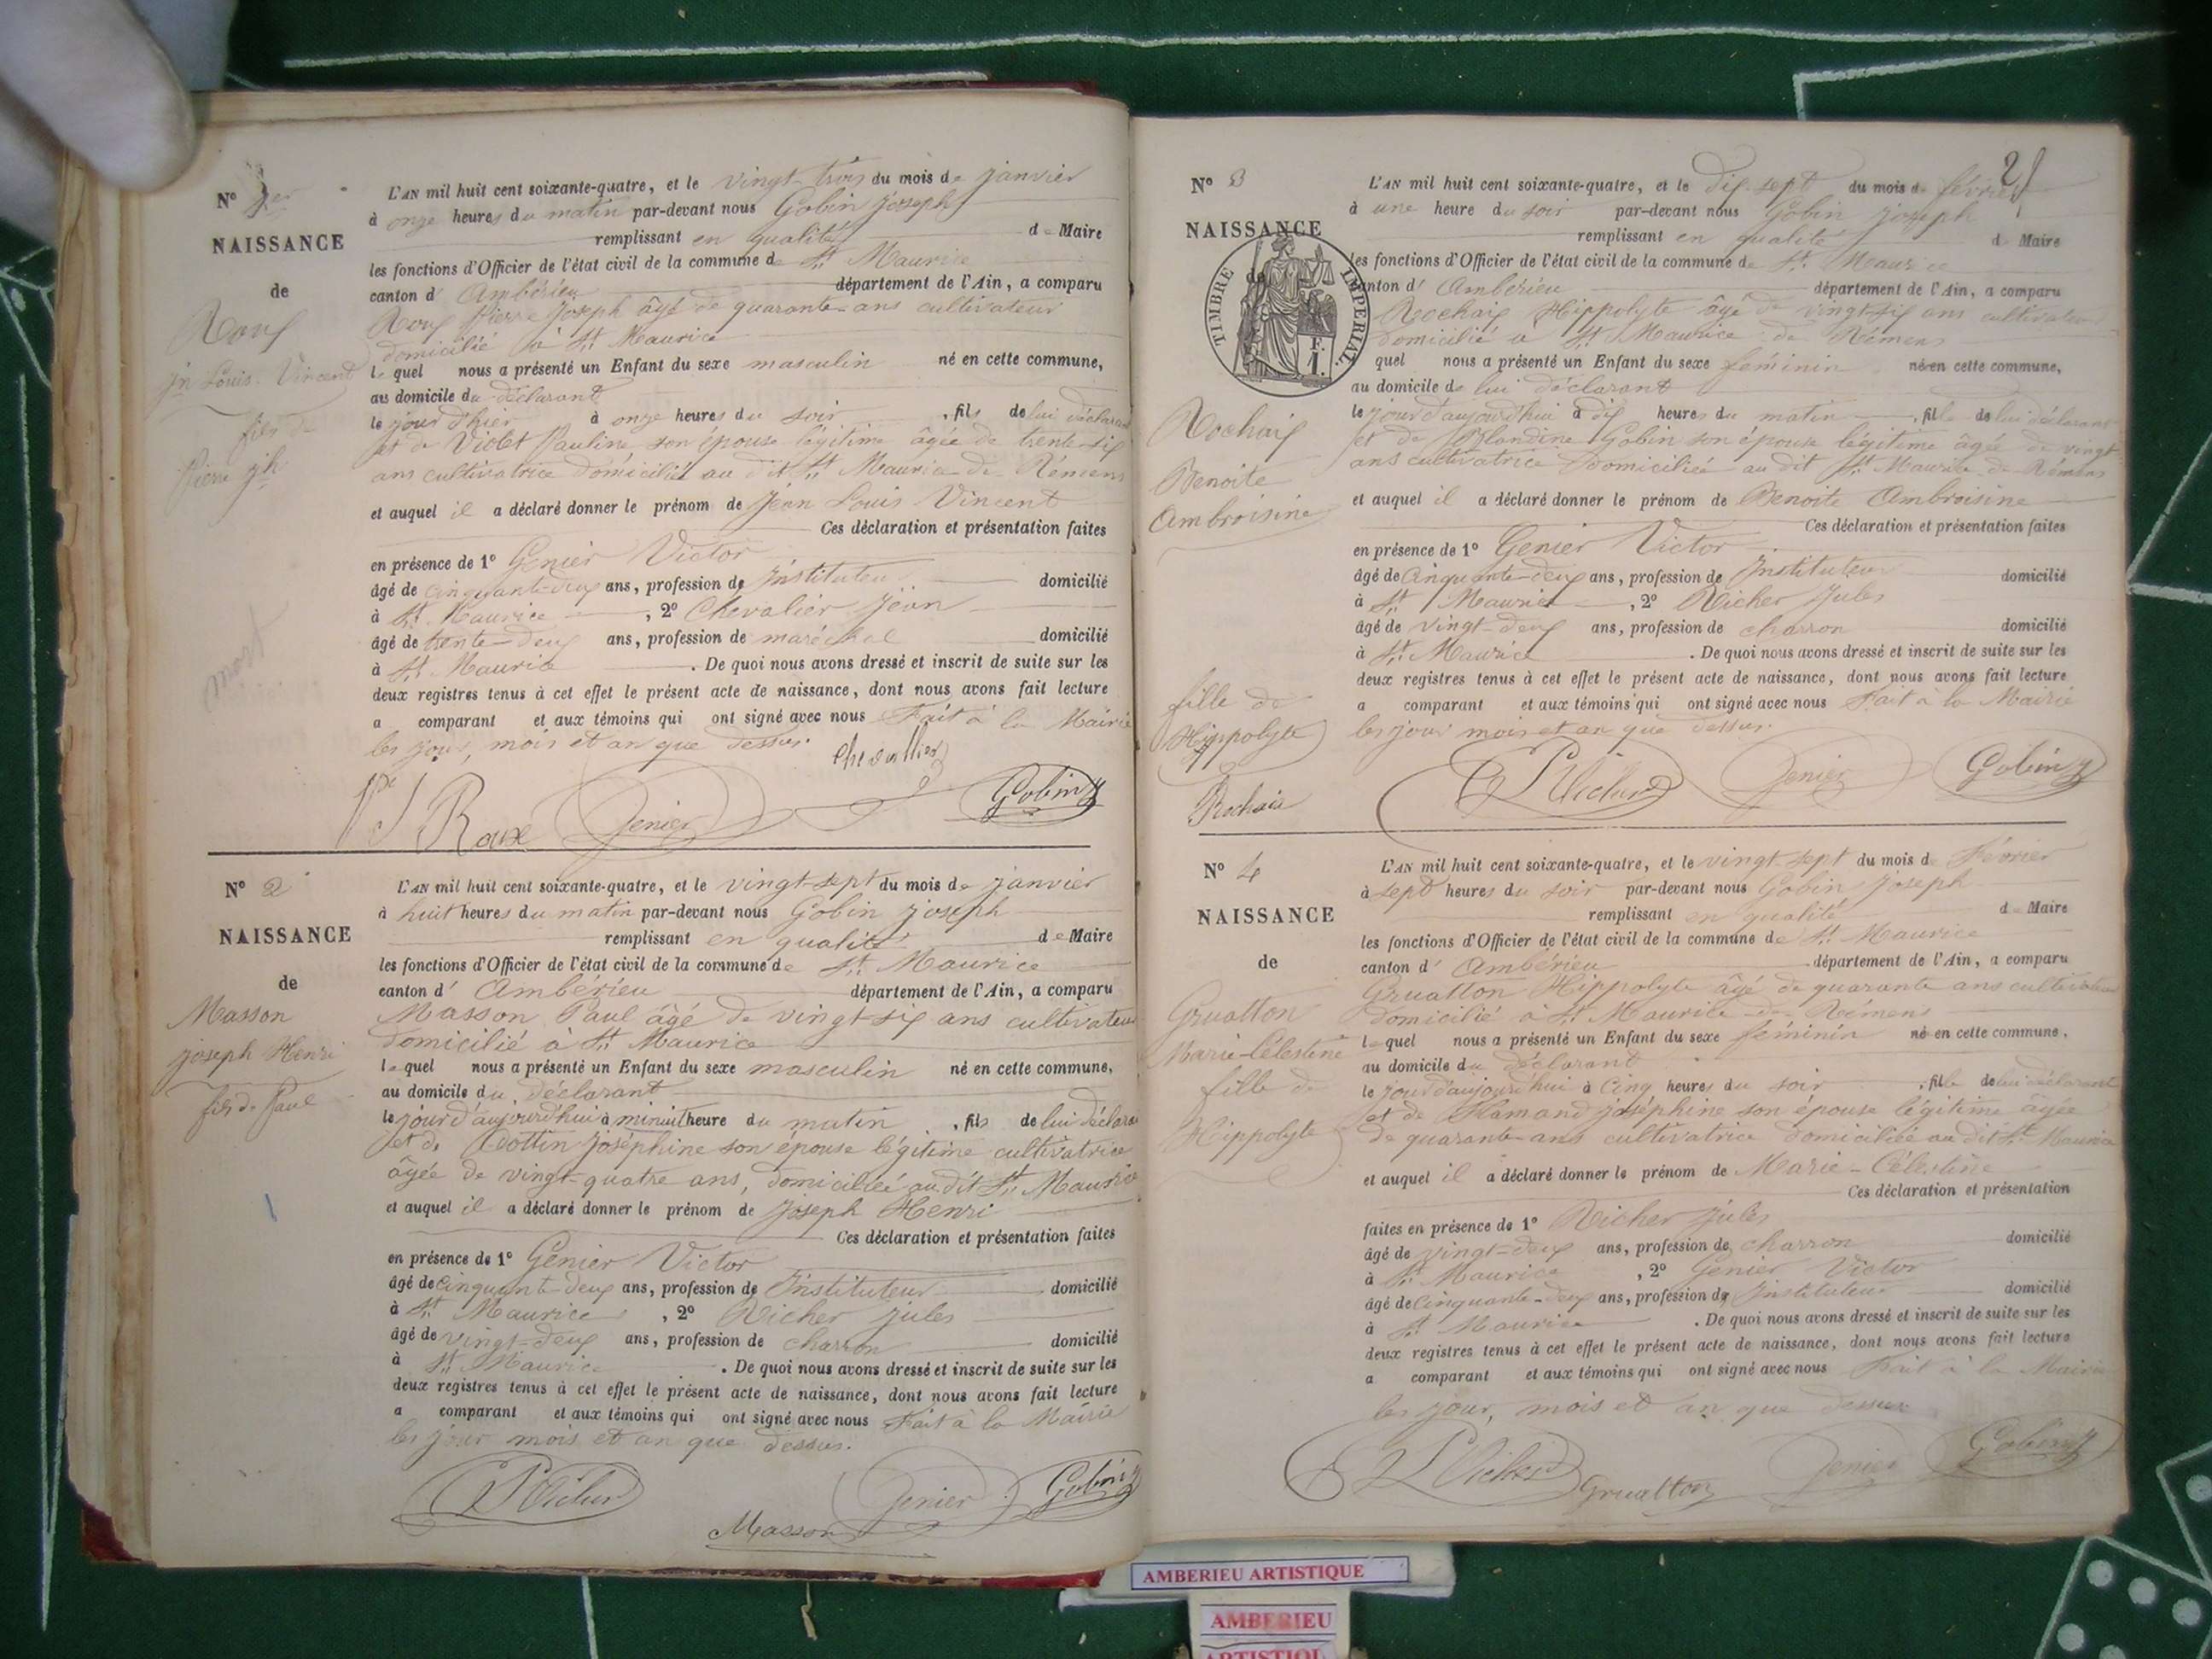 N° 1er
NAISSANCE
de
Roux
jn Louis Vincent
fils de
Pierre jh
mort
L'AN mil huit cent soixante-quatre, et le vingt-trois du mois de janvier
à onze heures du matin par-devant nous Gobin Joseph
remplissant en qualité de Maire
les fonctions d'Officier de l'état civil de la commune de St Maurice
canton d' Ambérieu département de l'Ain, a comparu
Roux Pierre Joseph âgé de quarante-ans cultivateur
domicilié à St Maurice
lequel nous a présenté un Enfant du sexe masculin né en cette commune,
au domicile du déclarant
le jour d'hier à onze heures du soir, fils de lui déclarant
et de Violet Pauline son épouse légitime âgée de trente-six
ans cultivatrice domiciliée au dit St Maurice de Rémens
et auquel il a déclaré donner le prénom de Jean Louis Vincent
Ces déclaration et présentation faites
en présence de 1° Genier Victor
âgé de cinquante-deux ans, profession de Instituteur domicilié
à St Maurice, 2° Chevalier Jean
âgé de trente-deux ans, profession de maréchal domicilié
à St Maurice. De quoi nous avons dressé et inscrit de suite sur les
deux registres tenus à cet effet le présent acte de naissance, dont nous avons fait lecture
a comparant et aux témoins qui ont signé avec nous Fait à la Mairie
les jour, mois et an que dessus.
Chevallier
Pre J Roux Genier Gobin
N° 2
NAISSANCE
de
Masson
joseph Henri
fils de Paul
L'AN mil huit cent soixante-quatre, et le vingt-sept du mois de janvier
à huit heures du matin par-devant nous Gobin joseph
remplissant en qualité de Maire
les fonctions d'Officier de l'état civil de la commune de St Maurice
canton d' Ambérieu département de l'Ain, a comparu
Masson Paul âgé de vingt-six ans cultivateur
domicilié à St Maurice
lequel nous a présenté un Enfant du sexe masculin né en cette commune,
au domicile du déclarant
le jour d'aujourd'hui à minuit heure du matin, fils de lui déclarant
et de Cottin joséphine son épouse légitime cultivatrice
âgée de vingt-quatre ans, domiciliée au dit St Maurice
et auquel il a déclaré donner le prénom de Joseph Henri
Ces déclaration et présentation faites
en présence de 1° Genier Victor
âgé de cinquante-deux ans, profession de Instituteur domicilié
à St Maurice, 2° Richer jules
âgé de vingt-deux ans, profession de charron domicilié
à St Maurice. De quoi nous avons dressé et inscrit de suite sur les
deux registres tenus à cet effet le présent acte de naissance, dont nous avons fait lecture
a comparant et aux témoins qui ont signé avec nous Fait à la Mairie
les jour mois et an que dessus.
Richer Masson Genier Gobin
N° 3
NAISSANCE
de
TIMBRE IMPERIAL
1 F.
Rochaix
Benoite
Ambroisine
fille de
Hippolyte
L'AN mil huit cent soixante-quatre, et le dix-sept du mois de février
à une heure du soir par-devant nous Gobin joseph
remplissant en qualité de Maire
les fonctions d'Officier de l'état civil de la commune de St Maurice
canton d' Ambérieu département de l'Ain, a comparu
Rochaix Hippolyte âgé de vingt-six ans cultivateur
domicilié à St Maurice de Rémens
quel nous a présenté un Enfant du sexe féminin né en cette commune,
au domicile de lui déclarant
le jour d'aujourd'hui à dix heures du matin, fille de lui déclarant
et de Blandine Gobin son épouse légitime âgée de vingt
ans cultivatrice domiciliée au dit St Maurice de Rémens
et auquel il a déclaré donner le prénom de Benoite Ambroisine
Ces déclaration et présentation faites
en présence de 1° Genier Victor
âgé de cinquante-deux ans, profession de Instituteur domicilié
à St Maurice, 2° Richer Jules
âgé de vingt-deux ans, profession de charron domicilié
à St Maurice. De quoi nous avons dressé et inscrit de suite sur les
deux registres tenus à cet effet le présent acte de naissance, dont nous avons fait lecture
a comparant et aux témoins qui ont signé avec nous Fait à la Mairie
les jour mois et an que dessus.
Rochaix Richer Genier Gobin
N° 4
NAISSANCE
de
Gruatton
Marie-Célestine
fille de
Hippolyte
L'AN mil huit cent soixante-quatre, et le vingt-sept du mois de Février
à sept heures du soir par-devant nous Gobin joseph
remplissant en qualité de Maire
les fonctions d'Officier de l'état civil de la commune de St Maurice
canton d' Ambérieu département de l'Ain, a comparu
Gruatton Hippolyte âgé de quarante ans cultivateur
domicilié à St Maurice de Rémens
lequel nous a présenté un Enfant du sexe féminin né en cette commune,
au domicile du déclarant
le jour d'aujourd'hui à cinq heures du soir, fille de lui déclarant
et de joséphine son épouse légitime âgée
de quarante-ans cultivatrice domiciliée au dit St Maurice
et auquel il a déclaré donner le prénom de Marie-Célestine
Ces déclaration et présentation
faites en présence de 1° Richer Jules
âgé de vingt-deux ans, profession de charron domicilié
à St Maurice, 2° Genier Victor
âgé de cinquante-deux ans, profession de Instituteur domicilié
à St Maurice. De quoi nous avons dressé et inscrit de suite sur les
deux registres tenus à cet effet le présent acte de naissance, dont nous avons fait lecture
a comparant et aux témoins qui ont signé avec nous Fait à la Mairie
les jour, mois et an que dessus
Richer Gruatton Genier Gobin
AMBERIEU ARTISTIQUE
AMBERIEU
ARTISTIQUE